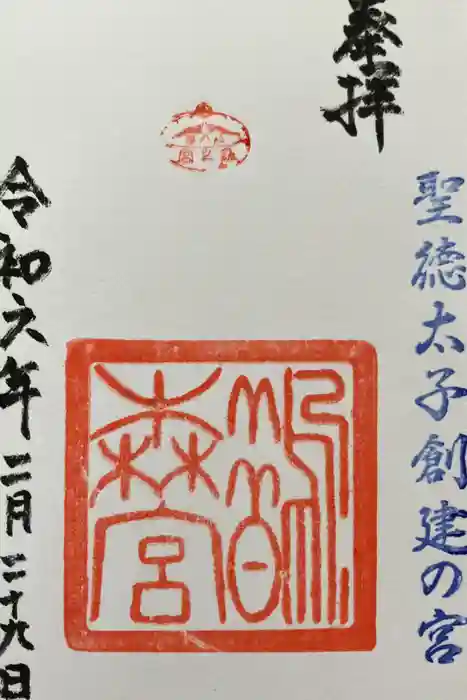 奉拝
聖徳太子創建の宮
鵲森宮
令和六年二月二十九日